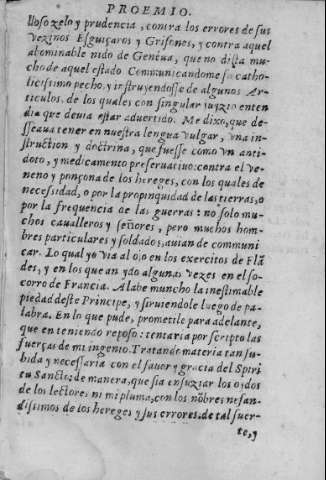 PROEMIO.
lloso zelo y prudencia, contra los errores de sus
vezinos Esguiçaros y Grisones, y contra aquel
abominable nido de Geneua, que no dista mu-
cho de aquel estado Communicandome su catho-
licissimo pecho, y instruyendosse de algunos Ar-
ticulos, de los quales con singular iuyzio enten
dia que deuia estar aduertido. Me dixo, que de-
sseaua tener en nuestra lengua vulgar, vna in-
struction y doctrina, que fuesse como vn anti-
doto, y medicamento preseruatiuo: contra el ve-
neno y ponçona de los hereges, con los quales de
necessidad, o por la propinquidad de las tierras, o
por la frequencia de las guerras: no solo mu-
chos caualleros y señores, pero muchos hom-
bres particulares y soldados, auian de communi
car. Lo qual yo via al ojo en los exercitos de Flã
des, y en los que an ydo algunas vezes en el so-
corro de Francia. Alabe muncho la inestimable
piedad deste Principe, y siruiendole luego de pa-
labra. En lo que pude, prometile para adelante,
que en teniendo reposo: tentaria por scripto las
fuerças de mi ingenio. Tratande materia tan su-
bida y necessaria con el fauor y gracia del Spiri
tu Sancto: de manera, que sin ensuziar los oydos
de los lectores ni mi pluma, con los nõbres nefan-
dissimos de los hereges y sus errores. de tal suer-
te, y